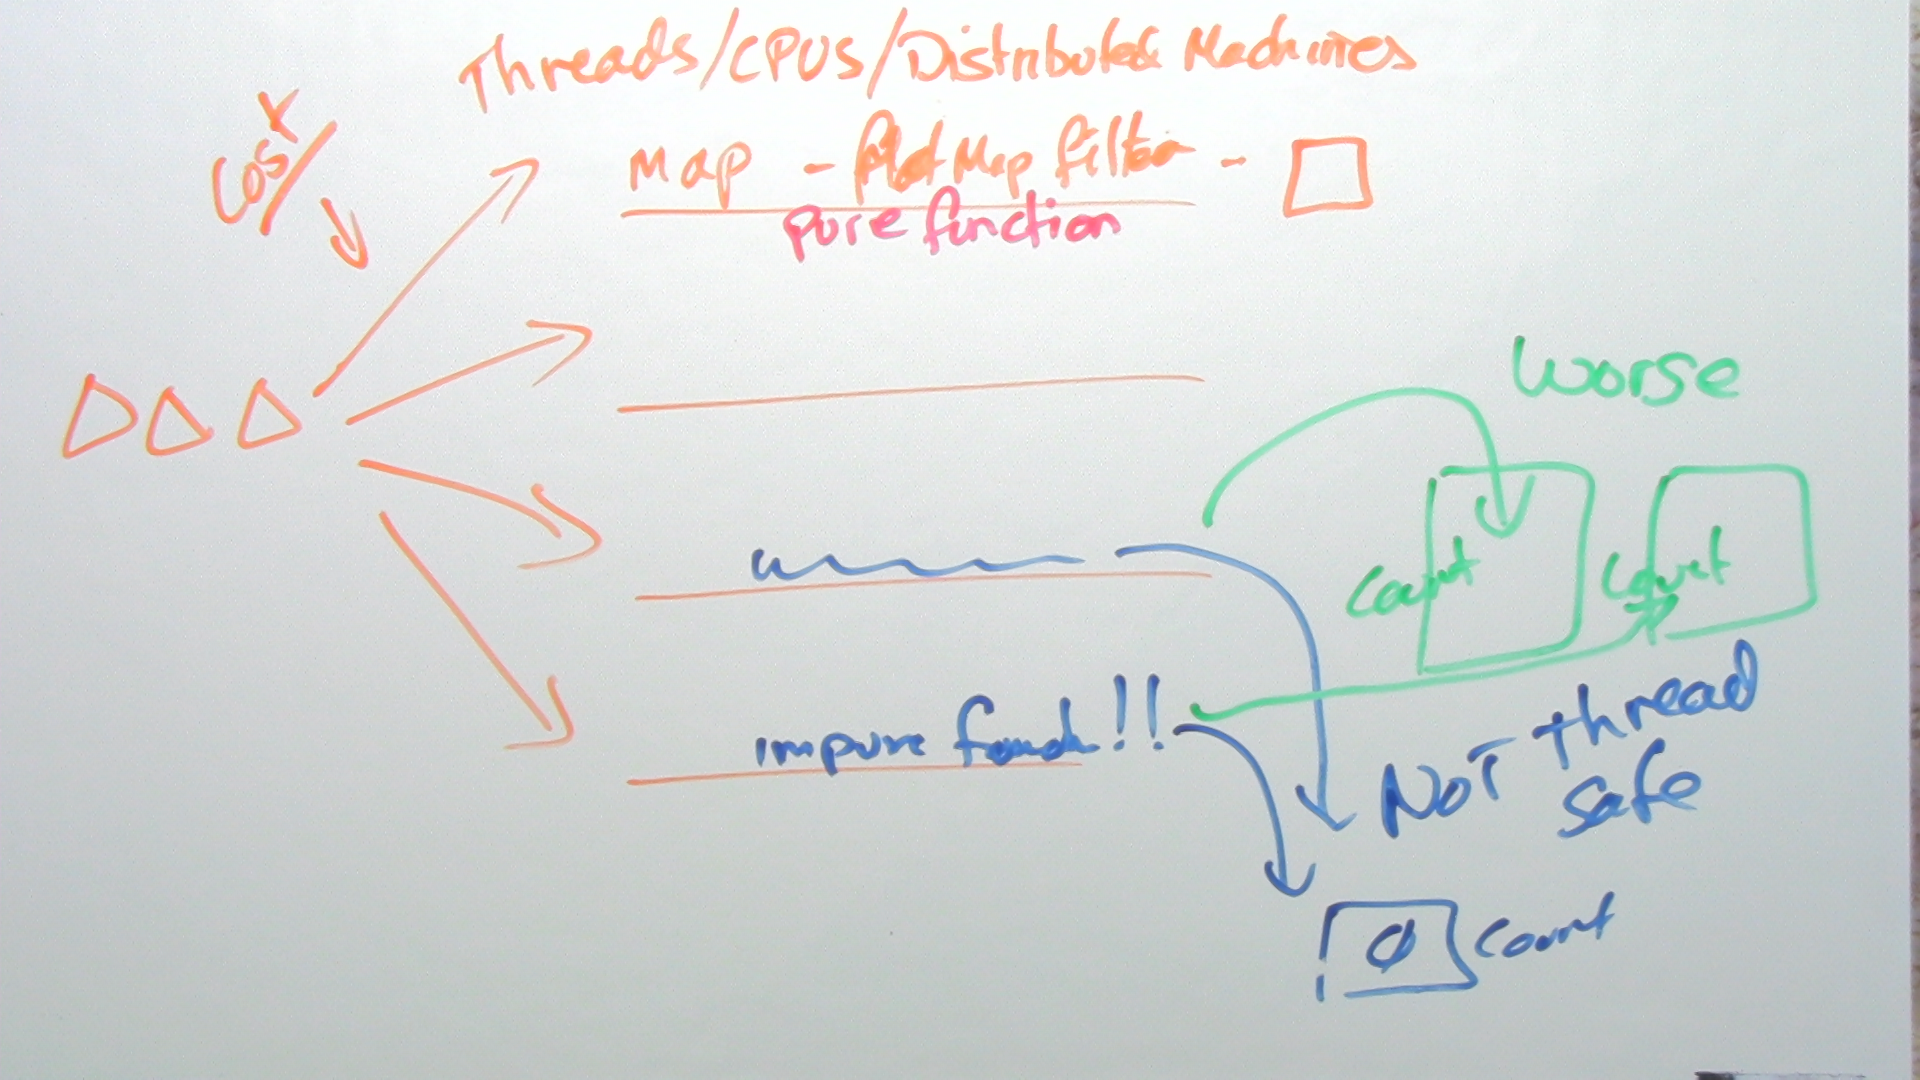 Threads/CPUS/Distributed Machines
Cost
Map - flatMap filter -
pure function
Worse
Count Count
impure funct!!
NOT thread
safe
0 Count